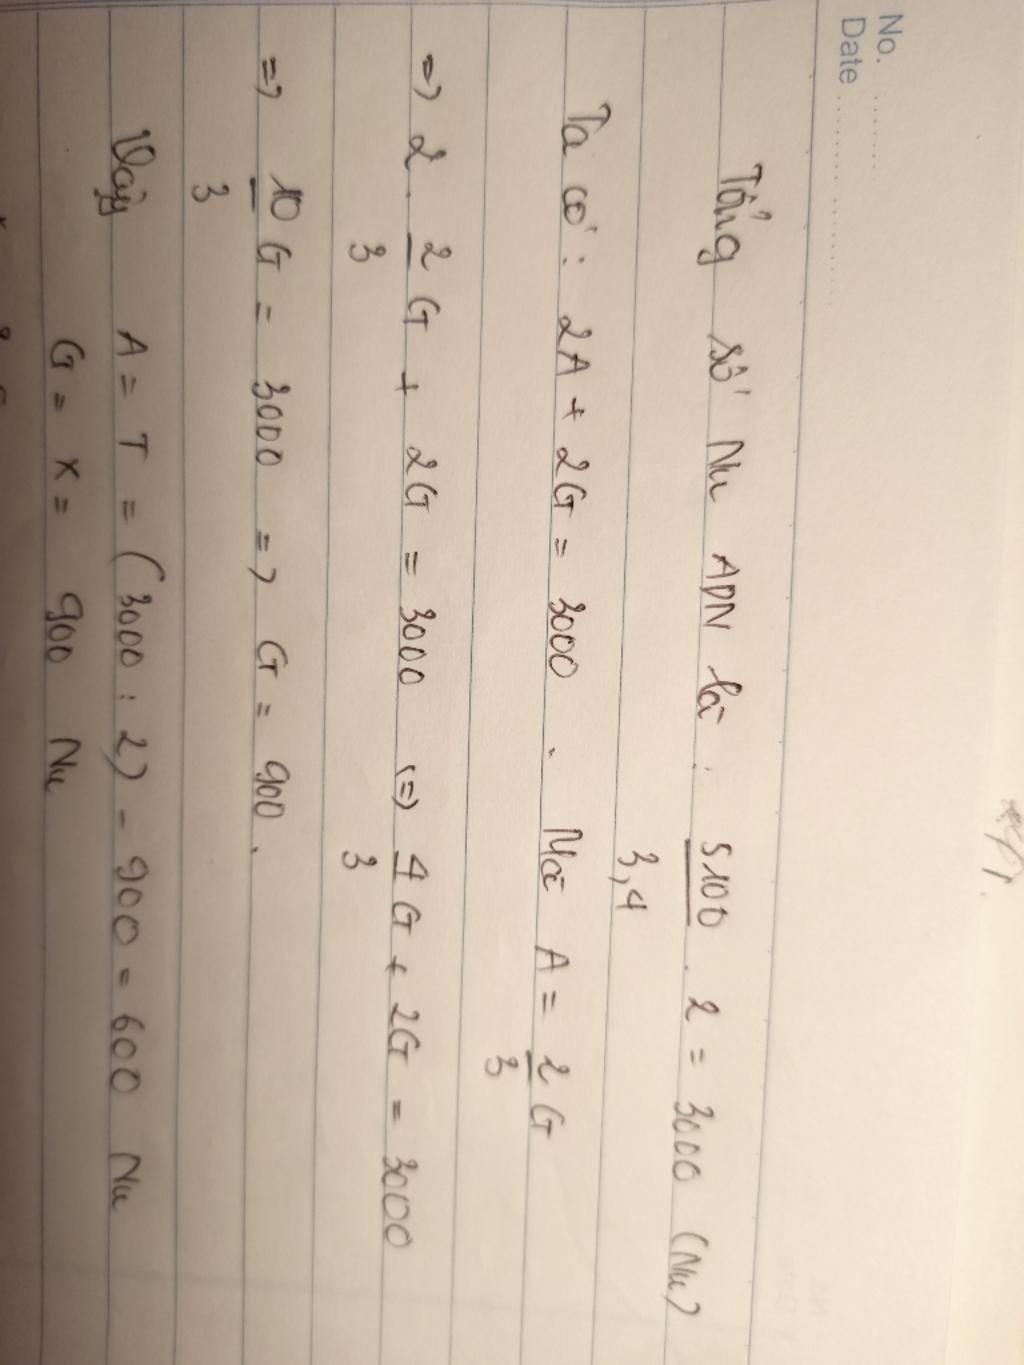 No.
Date
Tổng số Nu ADN là : 5100/3,4 . 2 = 3000 (Nu)
Ta có : 2A + 2G = 3000 . Mà A = 2/3 G
=> 2 . 2/3 G + 2G = 3000 (=) 4/3 G + 2G = 3000
=> 10/3 G = 3000 => G = 900 .
Vậy A = T = (3000 : 2) - 900 = 600 Nu
G = X = 900 Nu